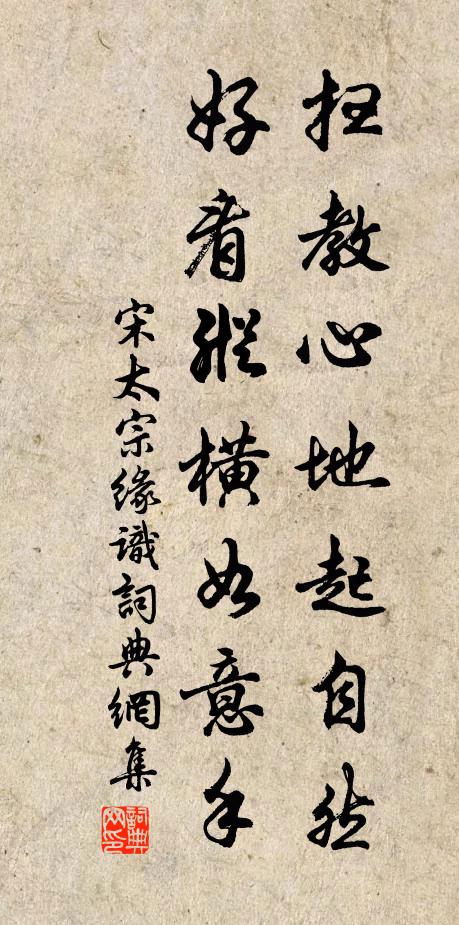 枉教心地起自然
好看縱橫如意手
宋太宗緣識詞典網集
詞典网印